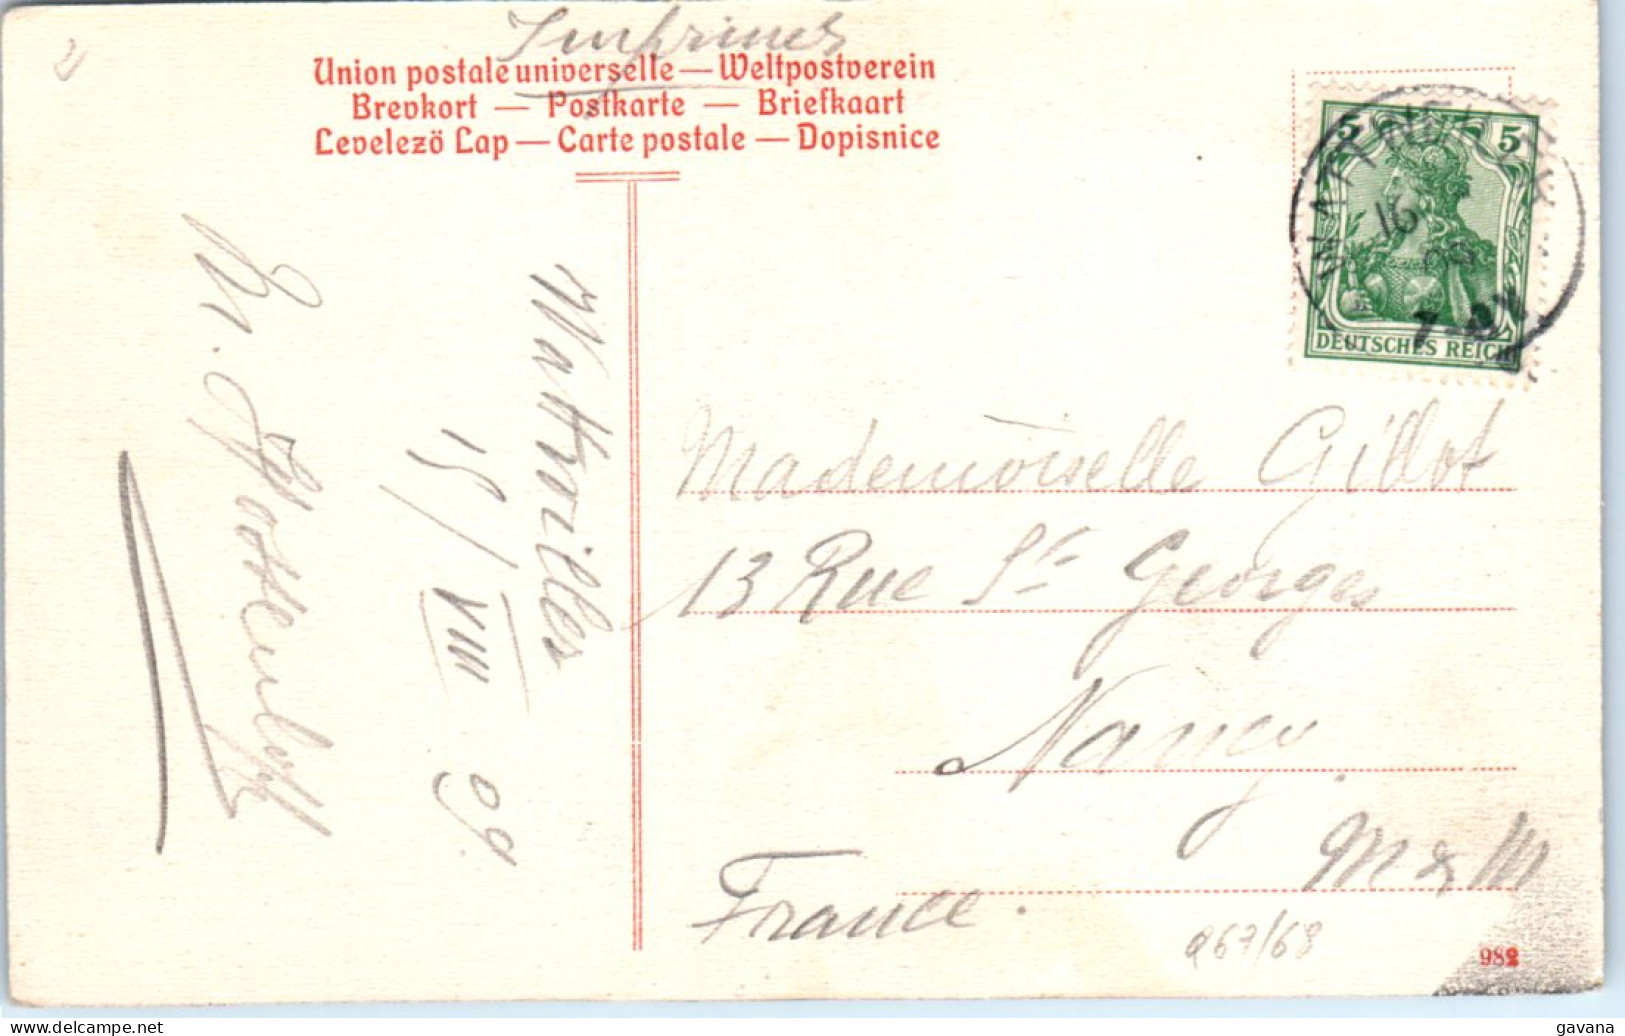 Imprimés
Union postale universelle — Weltpostverein
Brevkort — Postkarte — Briefkaart
Levelezö Lap — Carte postale — Dopisnice
5 5
DEUTSCHES REICH
16
Wattwiller
15/VIII 09.
Mademoiselle Gillot
13 Rue St Georges
Nancy.
M & M
France.
267/68
982
delcampe.net
gavana